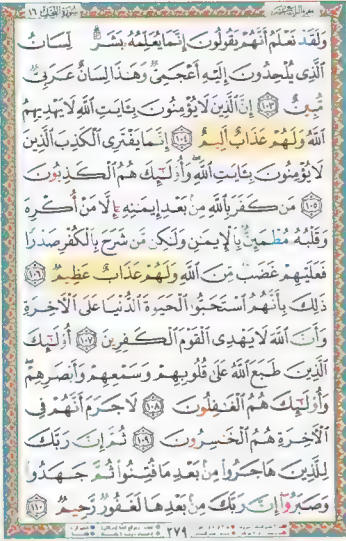 سورة النحل ١٦
وَلَقَدْ نَعْلَمُ أَنَّهُمْ يَقُولُونَ إِنَّمَا يُعَلِّمُهُ بَشَرٌ لِسَانُ
الَّذِي يُلْحِدُونَ إِلَيْهِ أَعْجَمِيٌّ وَهَٰذَا لِسَانٌ عَرَبِيٌّ
مُبِينٌ ١٠٣ إِنَّ الَّذِينَ لَا يُؤْمِنُونَ بِـَٔايَٰتِ اللَّهِ لَا يَهْدِيهِمُ
اللَّهُ وَلَهُمْ عَذَابٌ أَلِيمٌ ١٠٤ إِنَّمَا يَفْتَرِي الْكَذِبَ الَّذِينَ
لَا يُؤْمِنُونَ بِـَٔايَٰتِ اللَّهِ وَأُولَٰئِكَ هُمُ الْكَٰذِبُونَ
١٠٥ مَن كَفَرَ بِاللَّهِ مِنۢ بَعْدِ إِيمَٰنِهِ إِلَّا مَنْ أُكْرِهَ
وَقَلْبُهُ مُطْمَئِنٌّ بِالْإِيمَٰنِ وَلَٰكِن مَّن شَرَحَ بِالْكُفْرِ صَدْرًا
فَعَلَيْهِمْ غَضَبٌ مِّنَ اللَّهِ وَلَهُمْ عَذَابٌ عَظِيمٌ ١٠٦
ذَٰلِكَ بِأَنَّهُمُ اسْتَحَبُّوا الْحَيَوٰةَ الدُّنْيَا عَلَى الْآخِرَةِ
وَأَنَّ اللَّهَ لَا يَهْدِي الْقَوْمَ الْكَٰفِرِينَ ١٠٧ أُولَٰئِكَ
الَّذِينَ طَبَعَ اللَّهُ عَلَىٰ قُلُوبِهِمْ وَسَمْعِهِمْ وَأَبْصَٰرِهِمْ
وَأُولَٰئِكَ هُمُ الْغَٰفِلُونَ ١٠٨ لَا جَرَمَ أَنَّهُمْ فِي
الْآخِرَةِ هُمُ الْخَٰسِرُونَ ١٠٩ ثُمَّ إِنَّ رَبَّكَ
لِلَّذِينَ هَاجَرُوا مِنۢ بَعْدِ مَا فُتِنُوا ثُمَّ جَٰهَدُوا
وَصَبَرُوا إِنَّ رَبَّكَ مِنۢ بَعْدِهَا لَغَفُورٌ رَّحِيمٌ ١١٠
٢٧٩